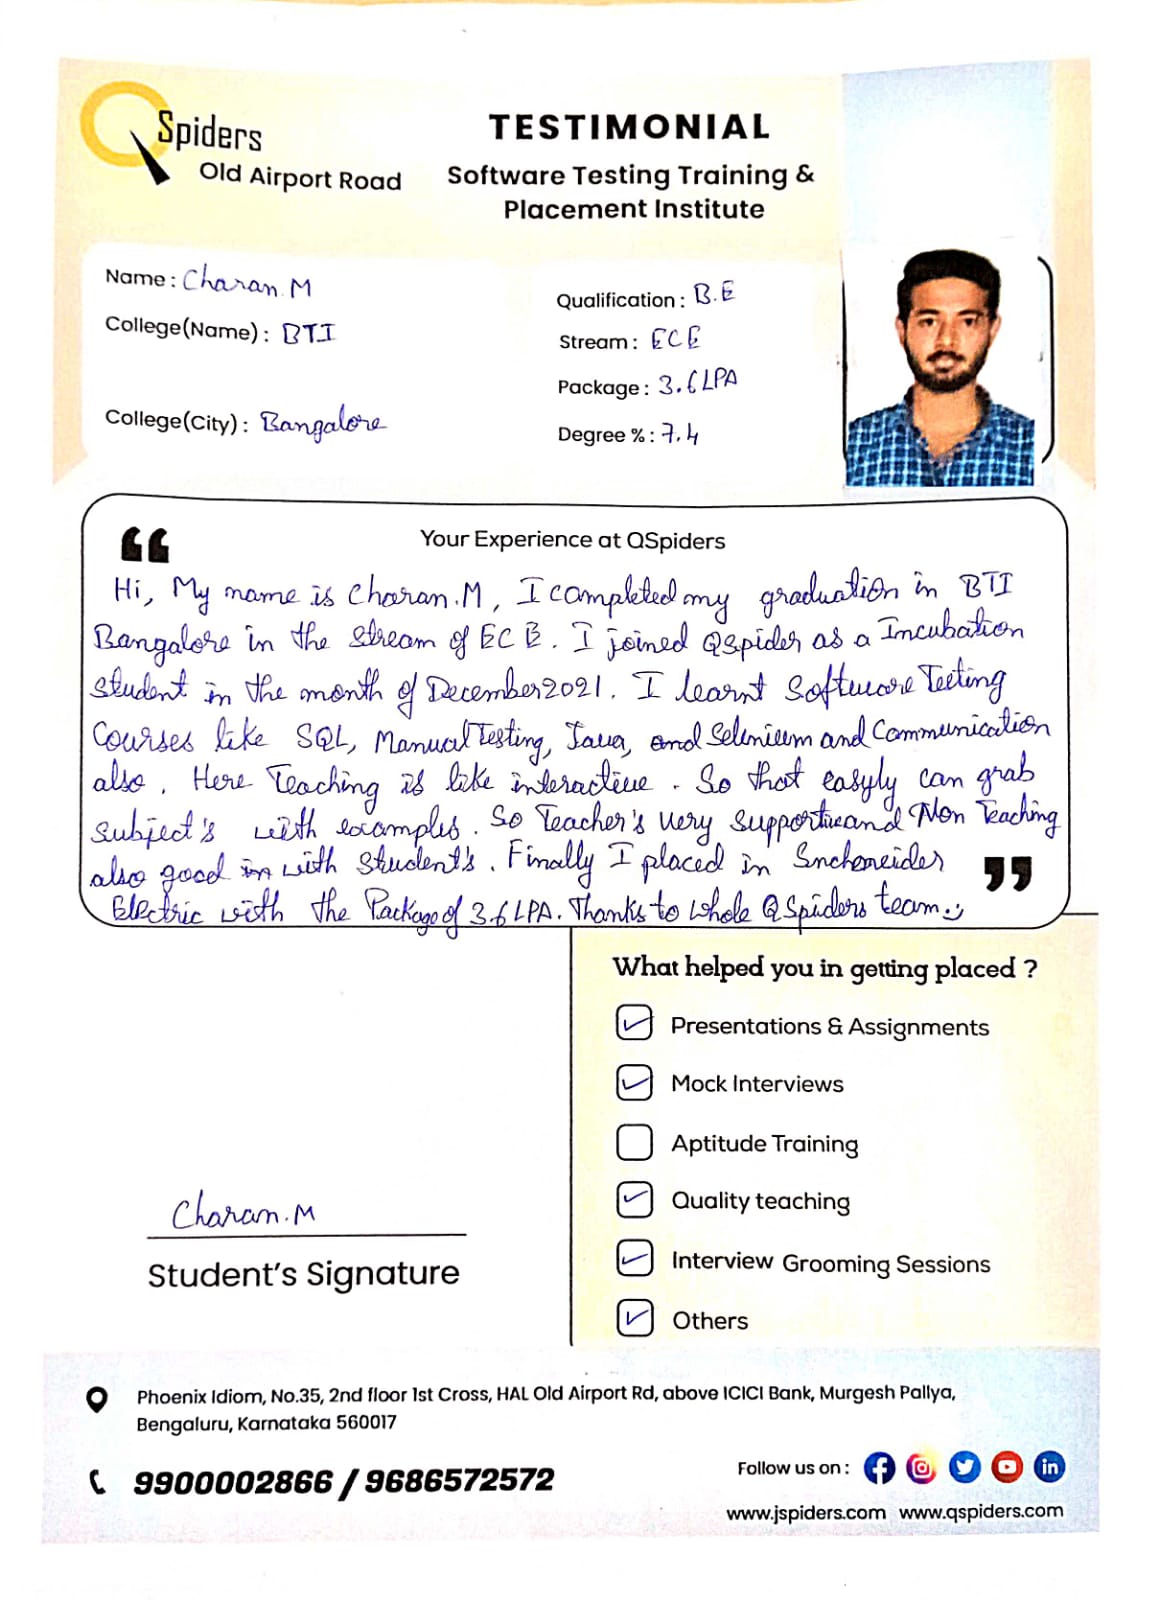 QSpiders
Old Airport Road
TESTIMONIAL
Software Testing Training &
Placement Institute
Name : Charan.M
College(Name) : BTI
College(City) : Bangalore
Qualification : B.E
Stream : ECE
Package : 3.6LPA
Degree % : 7.4
Your Experience at QSpiders
Hi, My name is Charan.M, I completed my graduation in BTI
Bangalore in the stream of ECE. I joined QSpider as a Incubation
Student in the month of December2021. I learnt Software Testing
Courses like SQL, Manual Testing, Java, and Selenium and Communication
also. Here Teaching is like interactive. So that easyly can grab
Subject's with examples. So Teacher's very Supportive and Non Teaching
also good in with Student's. Finally I placed in Snchoneider
Electric with the Package of 3.6 LPA. Thanks to whole QSpiders team :)
What helped you in getting placed ?
Presentations & Assignments
Mock Interviews
Aptitude Training
Quality teaching
Interview Grooming Sessions
Others
Charan.M
Student's Signature
Phoenix Idiom, No.35, 2nd floor 1st Cross, HAL Old Airport Rd, above ICICI Bank, Murgesh Pallya,
Bengaluru, Karnataka 560017
9900002866 / 9686572572
Follow us on :
www.jspiders.com www.qspiders.com